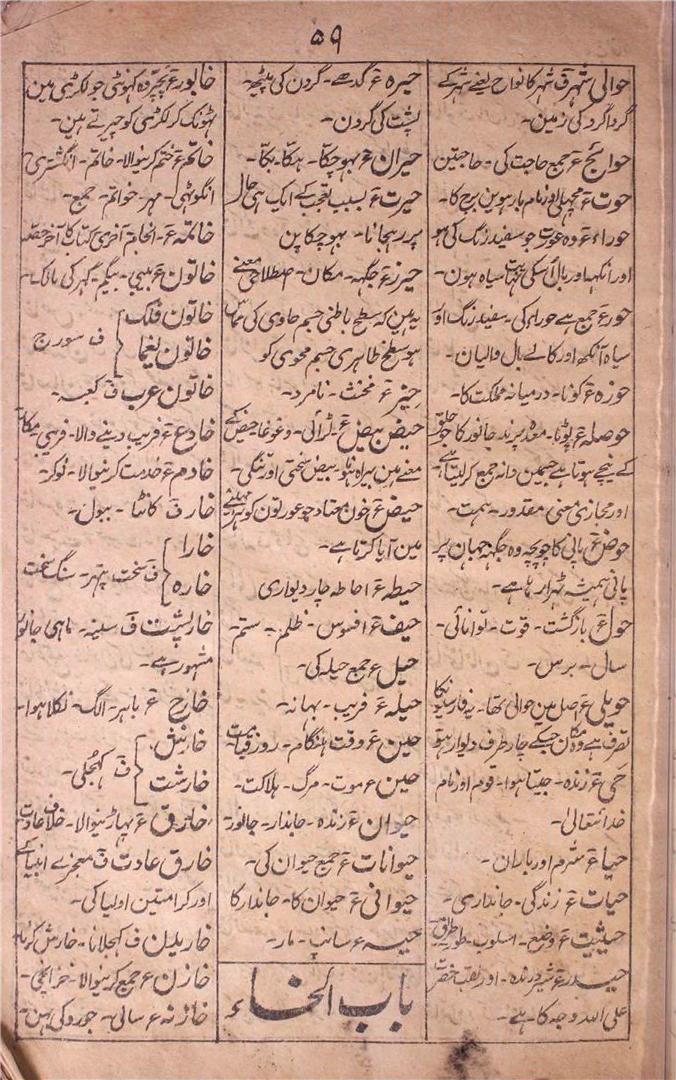 ۵۹
حوالی شہر ف شہر کا نواح یعنے شہر کے
گرداگرد کی زمین۔
حوائج ع جمع حاجت کی۔ حاجتین
حوت ع مچھلی اور نام بارہوین برج کا۔
حوراء ع وہ عورت جو سفید رنگ کی ہو
اور آنکھہ اور بال اُسکی نہایت سیاہ ہون۔
حور ع جمع ہے حوراء کی۔ سفید رنگ اور
سیاہ آنکھ اور کالے بال والیان۔
حوزہ ع کونا۔ درمیانہ مملکت کا۔
حوصلہ ع پوٹا۔ معدہ پرند جانور کا جو حلق
کے نیچے ہوتا ہے جسمین دانہ جمع کر لیتا ہے
اور مجازی معنی مقدور۔ ہمت۔
حوض ع پانی کا چوبچہ وہ جگہہ جہان پر
پانی ہمیشہ ٹہرا رہتا ہے۔
حول ع بازگشت۔ قوت۔ توانائی۔
سال۔ برس۔
حویلی ع اصل مین حوالی تھا۔ یہ فارسیونکا
تصرف ہے وہ مکان جسکے چار طرف دیوار ہو
حَی ع زندہ۔ جیتا ہوا۔ قوم اور نام
خدا تعالیٰ۔
حیاء ع شرم اور باران۔
حیات ع زندگی۔ جانداری۔
حیثیت ع وضع۔ اسلوب۔ طور طریق
حیدر ع شیر درندہ۔ اور لقب حضرت
علی اللہ وجہہ کا۔ ہے۔
حیرہ ع گدھے۔ گردن کی پیٹھ۔
پشت کی گردن۔
حیران ع بہوچکا۔ ہکا۔ بکا۔
حیرت ع بسبب تعجب کے ایک ہی حال
پر رہجانا۔ بہوچکا پن
حیز ع جگہہ۔ مکان۔ اصطلاحی معنے
یہ ہین کہ سطح باطنی جسم حاوی کی مماس
ہو سطح ظاہری جسم محوی کو
حیز ع مخنث۔ نامرد۔
حیض بیض ع لڑائی۔ و غوغا حیض کے
معنے مین بیراہ ہونا۔ بیض سختی اور تنگی۔
حیض ع خون معتاد جو عورتون کو ہر مہینے
مین آیا کرتا ہے۔
حیطہ ع احاطہ چار دیواری
حیف ع افسوس۔ ظلم۔ ستم۔
حیل ع جمع حیلہ کی۔
حیلہ ع فریب۔ بہانہ۔
حین ع وقت ہنگام۔ روز قیامت
حین ع موت۔ مرگ۔ ہلاکت۔
حیوان ع زندہ۔ جاندار۔ جانور۔
حیوانات ع جمع حیوان کی۔
حیوانی ع حیوان کا۔ جاندار کا
حیہ ع سانپ۔ مار۔
باب الخاء
خابور ع پچر وہ کہونٹی جو لکڑی مین
ٹھونک کر لکڑی کو چیرتے ہین۔
خاتم ع ختم کرنیوالا۔ خاتم۔ انگشتری
انگوٹھی۔ مہر۔ خواتم۔ جمع۔
خاتمہ ع انجام آخری کتاب کا آخر حصہ
خاتون ع بیبی۔ بیگم۔ گہر کی مالک۔
خاتون فلک
خاتون یغما
ف سورج
خاتون عرب ف کعبہ۔
خادع ع فریب دینے والا۔ فریبی۔ مکار
خادم ع خدمت کرنیوالا۔ نوکر۔
خار ف کانٹا۔ ببول۔
خارا
خارہ
ف سخت پتہر۔ سنگ سخت
خارپشت ف سیتہ۔ ساہی جانور
مشہور ہے۔
خارج ع باہر۔ الگ۔ نکلا ہوا۔
خارش
خارشت
ف کہجلی۔
خارق ع پہاڑنیوالا۔ خلاف عادت
خارق عادت ف معجزے انبیا کے
اور کرامتین اولیا کی۔
خاریدن ف کہجلانا۔ خارش کرنا۔
خازن ع جمع کرنیوالا۔ خزانچی۔
خازنہ ع سالی۔ جورو کی بہن۔